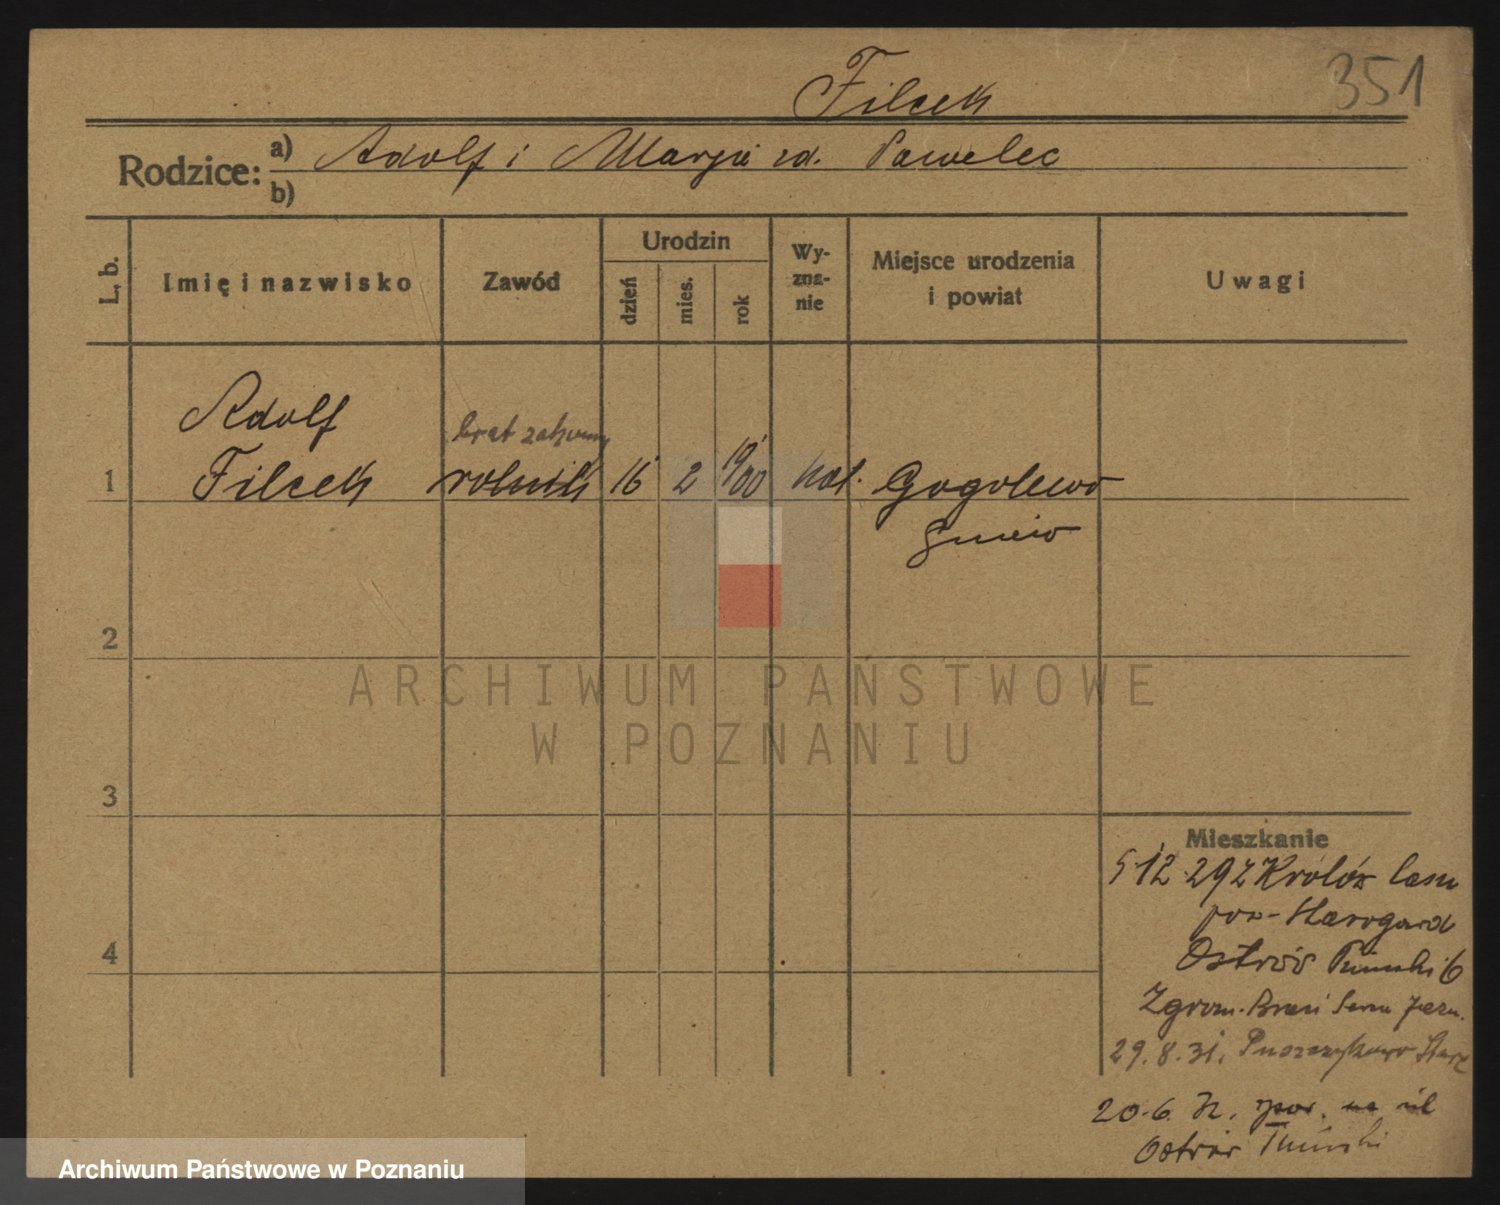 Filcek
351
Rodzice:
a) Adolf i Marja zd. Pawelec
b)
L. b.
Imię i nazwisko
Zawód
Urodzin
dzień
mies.
rok
Wy-
zna-
nie
Miejsce urodzenia
i powiat
Uwagi
Adolf
brat zakonny
1 Filcek rolnik 16 2 1900 kat. Gogolewo
Gniew
2
ARCHIWUM PAŃSTWOWE
W POZNANIU
3
Mieszkanie
5.12.29 z Królów lasu
pow. Starogard
4
Ostrów Tumski 6
Zgrom. Braci Serca Jezu.
29.8.31. Puszczykowo Star.
20.6. na ul
Ostrów Tumski
Archiwum Państwowe w Poznaniu